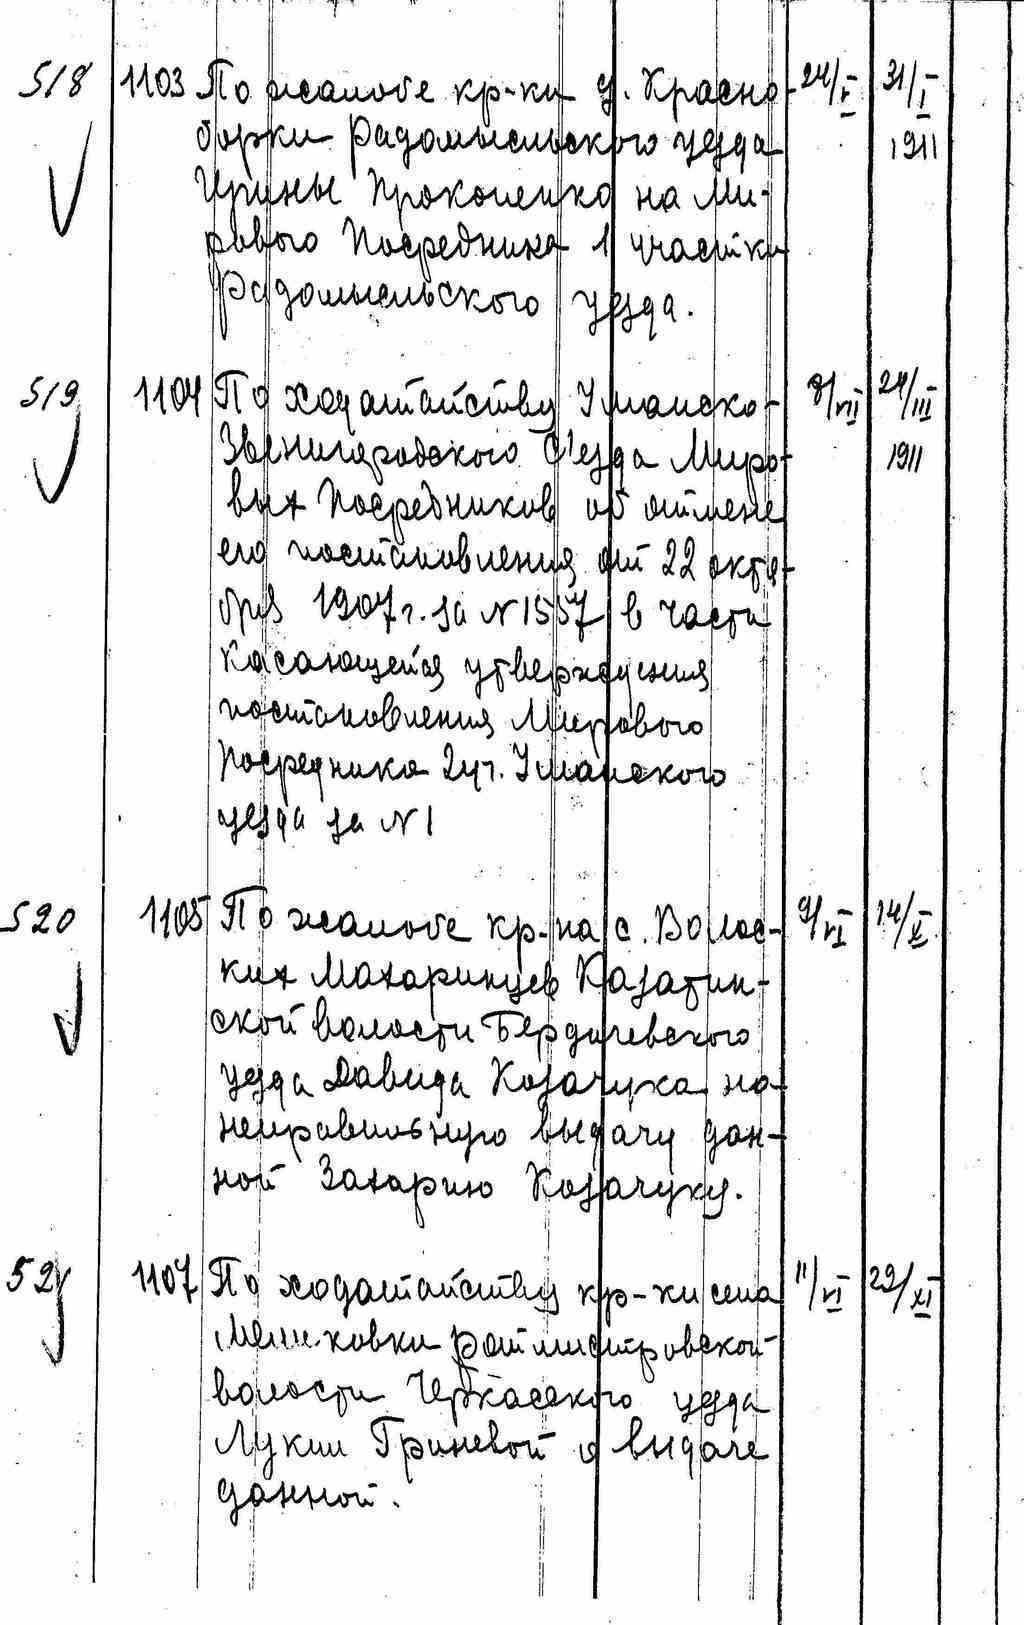 518 1103 По жалобе кр-ки д. Красно- 24/V 31/I
борки Радомысльского уезда 1911
Ирины Прокопенко на Ми-
рового Посредника 1 участка
Радомысльского уезда.
519 1104 По ходатайству Уманско- 8/VII 24/III
Звенигородского С'езда Миро- 1911
вых Посредников об отмене
его постановления от 22 октя-
бря 1907 г. за N 1557 в части
касающейся утверждения
постановления Мирового
Посредника 2 уч. Уманского
уезда за N 1
520 1105 По жалобе кр-на с. Волос- 9/VI 14/X
ких Махаринцев Казатин-
ской волости Бердичевского
уезда Давида Козачука на
неправильную выдачу дан-
ной Захарию Козачуку.
521 1107 По ходатайству кр-ки села 11/VI 29/XI
Мошковки Ротмистровской
волости Черкасского уезда
Лукии Гриневой о выдаче
данной.